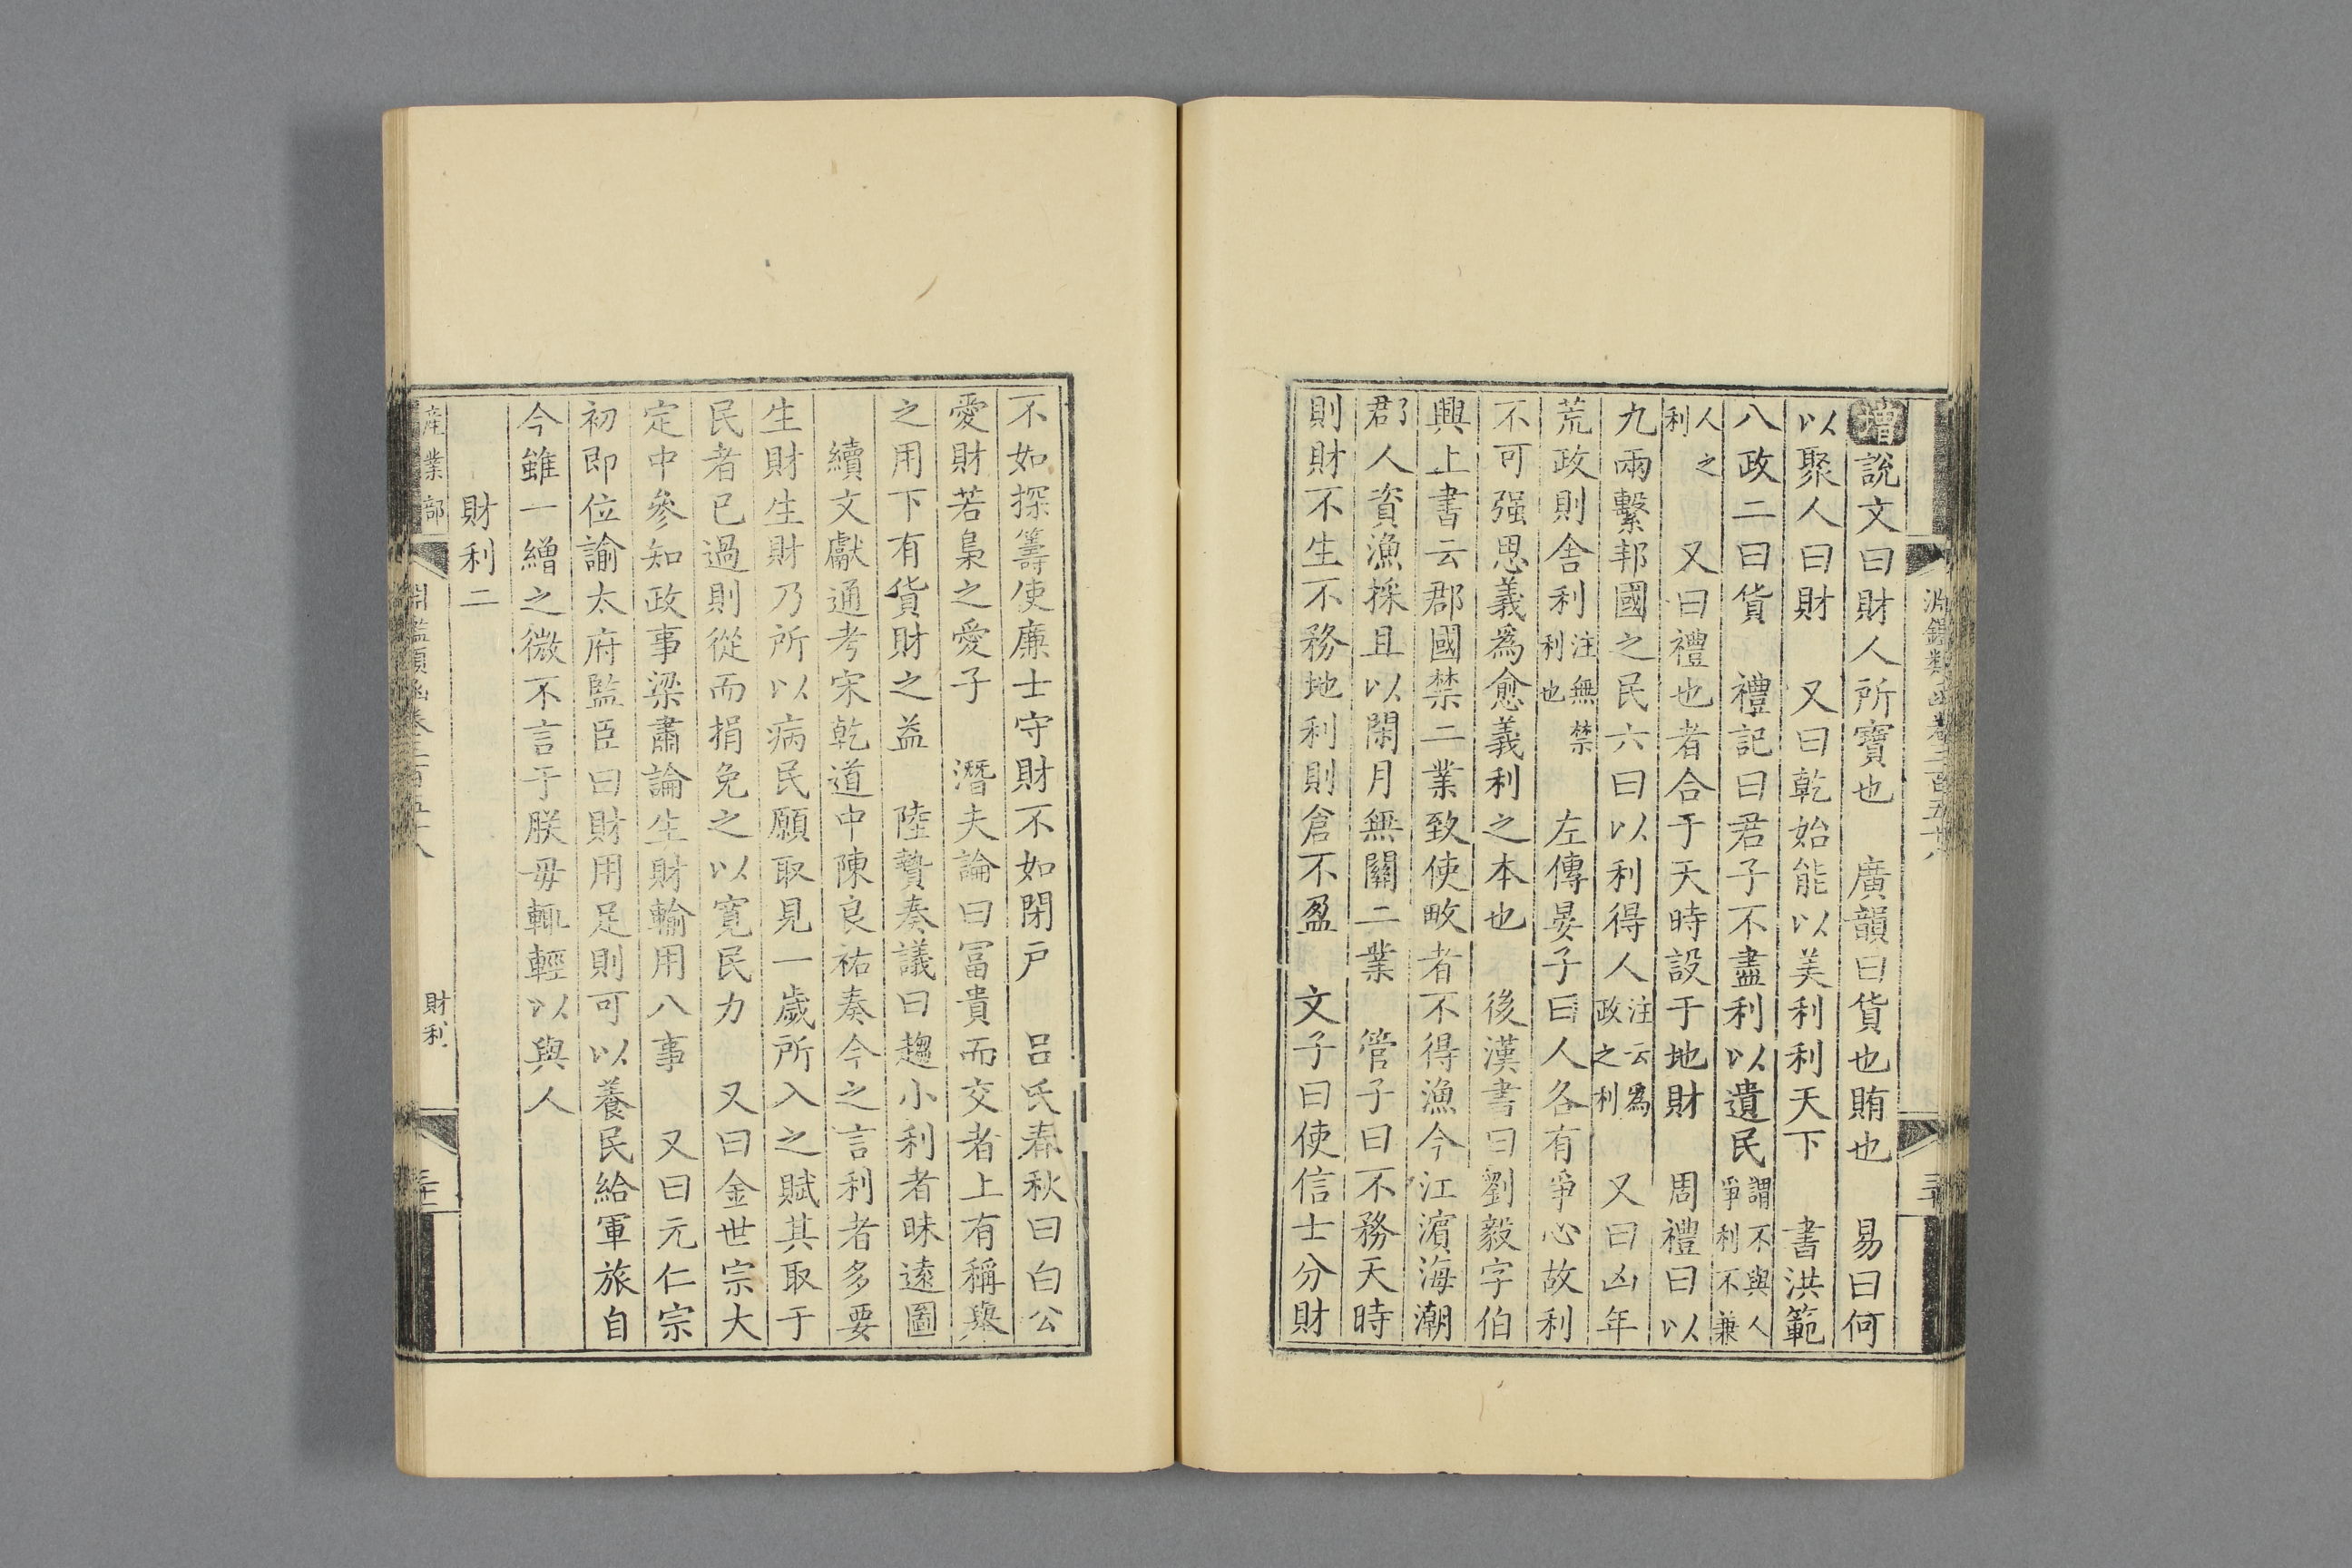 增說文曰財人所寶也　廣韻曰貨也賄也　易曰何
以聚人曰財　又曰乾始能以美利利天下　書洪範
八政二曰貨　禮記曰君子不盡利以遺民謂不與人爭利不兼
人之利　又曰禮也者合于天時設于地財　周禮曰以
九兩繫邦國之民六曰以利得人注云為政之利　又曰凶年
荒政則舍利注無禁利也　左傳晏子曰人各有爭心故利
不可强思義爲愈義利之本也　後漢書曰劉毅字伯
興上書云郡國禁二業致使畋者不得漁今江濱海潮
郡人資漁採且以閑月無關二業　管子曰不務天時
則財不生不務地利則倉不盈　文子曰使信士分財
不如探籌使廉士守財不如閉戸　呂氏春秋曰白公
愛財若梟之愛子　潛夫論曰冨貴而交者上有稱舉
之用下有貨財之益　陸贄奏議曰趨小利者昧遠圖
續文獻通考宋乾道中陳良祐奏今之言利者多要
生財生財乃所以病民願取見一歲所入之賦其取于
民者已過則從而捐免之以寬民力　又曰金世宗大
定中參知政事梁肅論生財輸用八事　又曰元仁宗
初即位諭太府監臣曰財用足則可以養民給軍旅自
今雖一繒之微不言于朕毋輒輕以與人
財利二
產業部
淵鑑類函卷三百五十八
財利